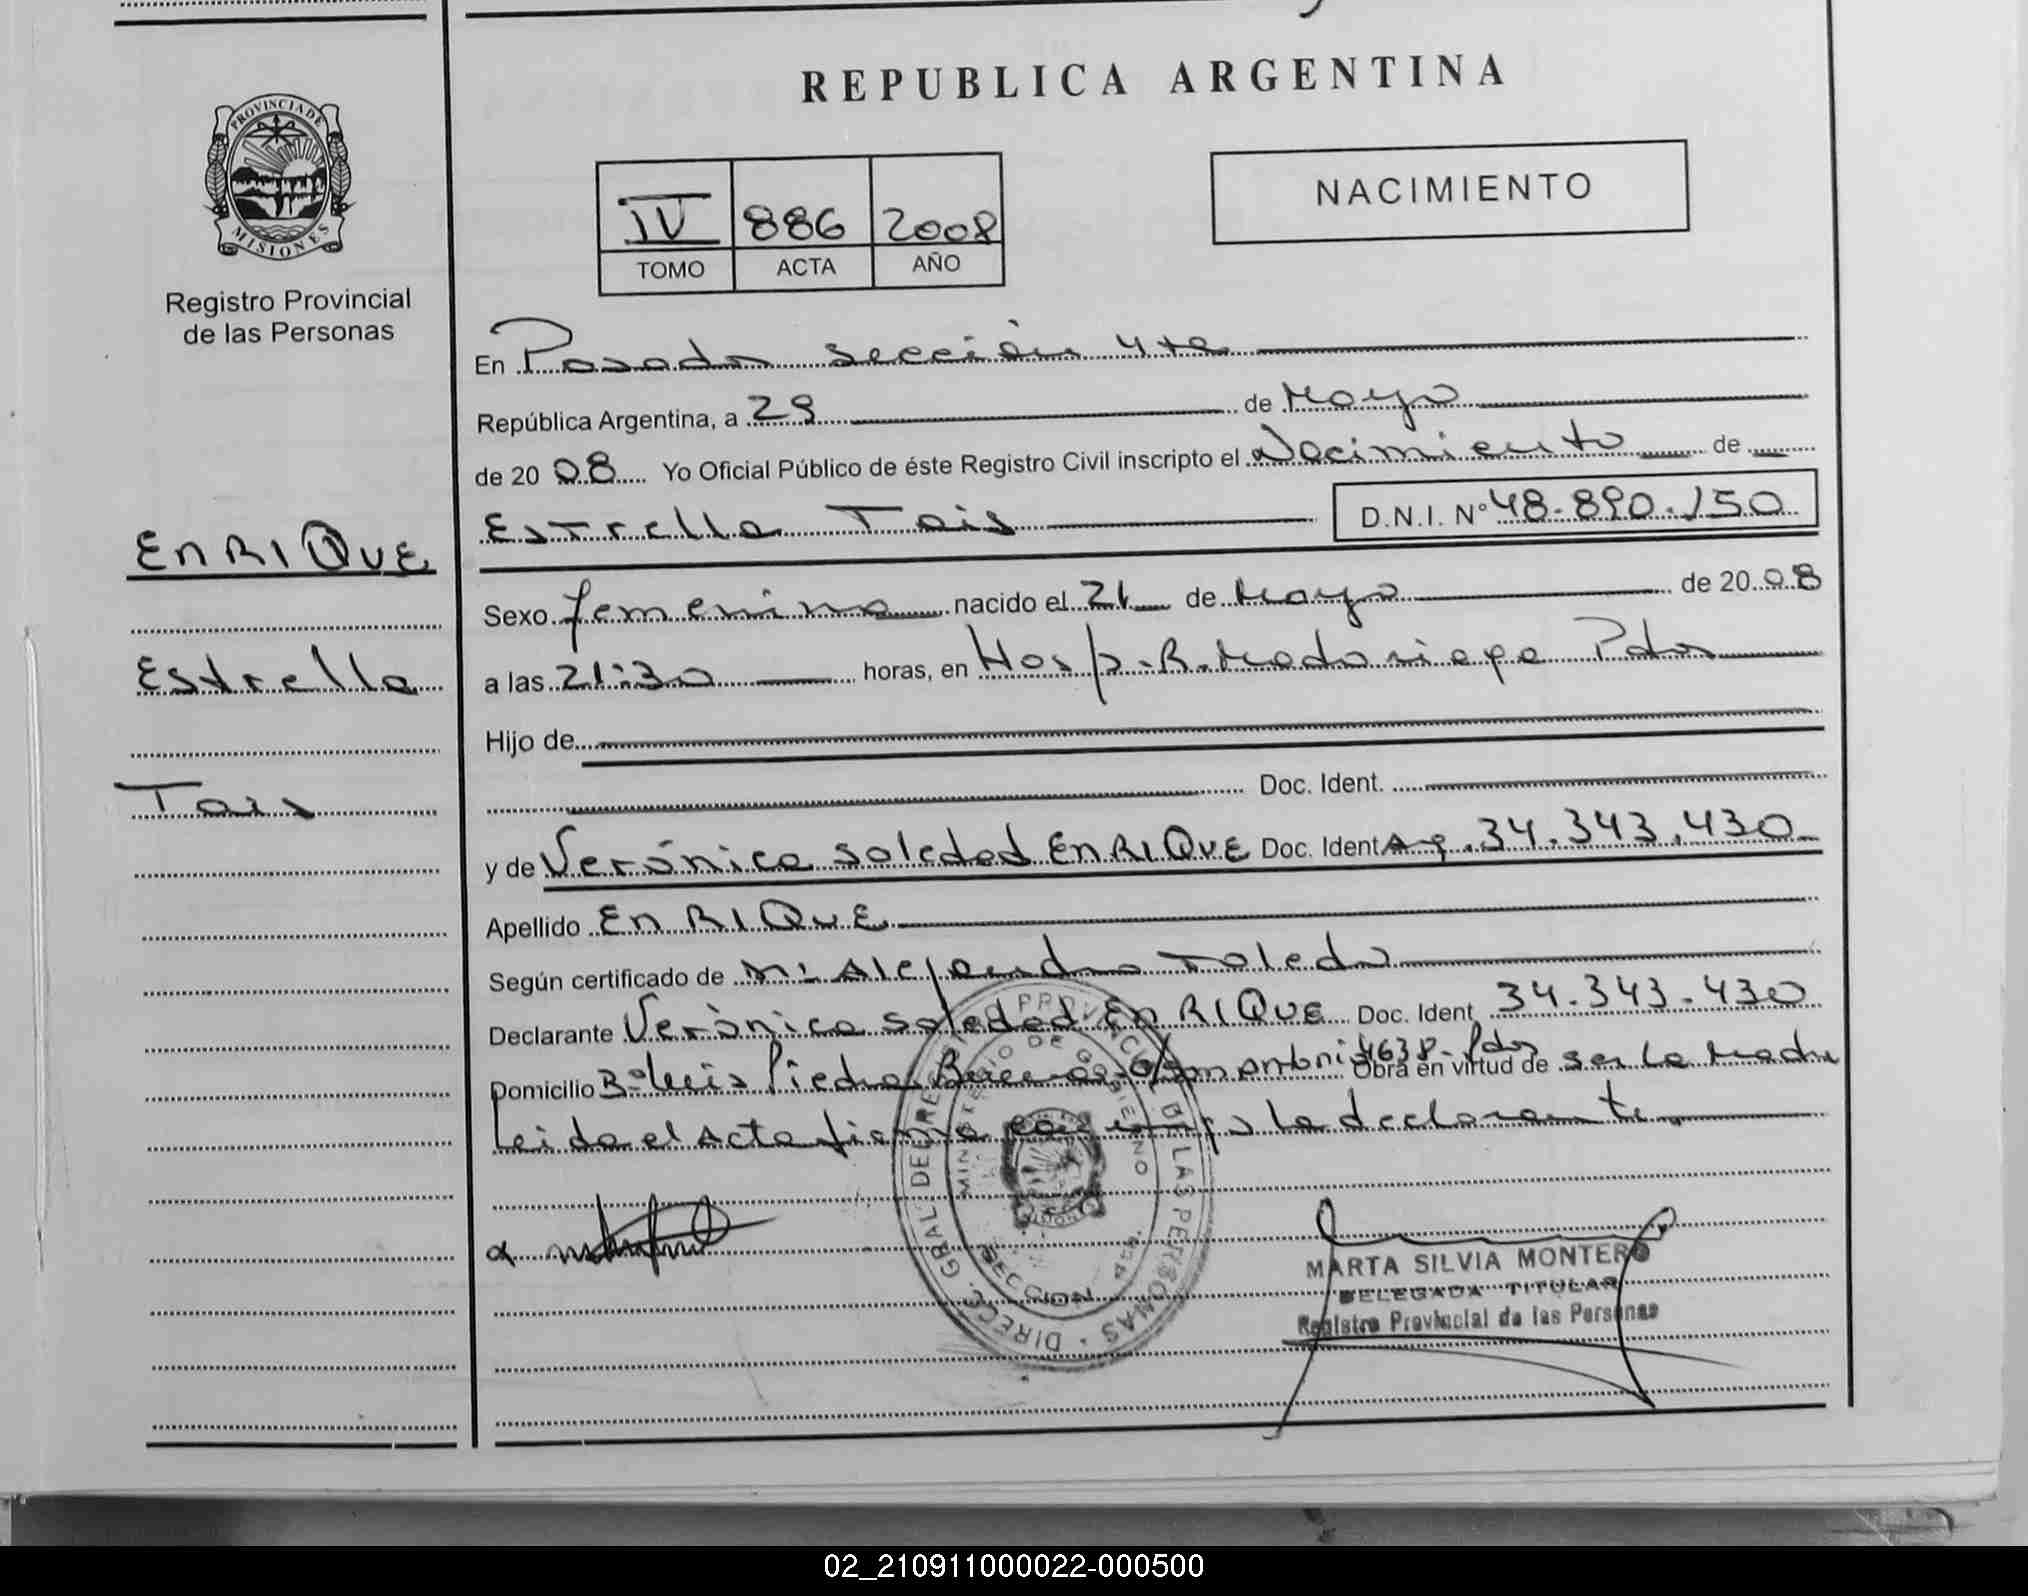 REPUBLICA ARGENTINA
PROVINCIA DE
MISIONES
Registro Provincial
de las Personas
IV 886 2008
TOMO ACTA AÑO
NACIMIENTO
ENRIQUE
Estrella
Tais
En Posadas sección 4ta
República Argentina, a 29 de Mayo
de 20 08 Yo Oficial Público de éste Registro Civil inscripto el Nacimiento de
Estrella Tais D.N.I. N° 48.890.150
Sexo femenino nacido el 21 de Mayo de 20 08
a las 21:30 horas, en Hosp. R. Madariaga Pdas
Hijo de
Doc. Ident.
y de Verónica Soledad ENRIQUE Doc. Ident 34.343.430
Apellido ENRIQUE
Según certificado de Alejandro Toledo
Declarante Verónica Soledad ENRIQUE Doc. Ident 34.343.430
Domicilio B° Luis Piedra Buena 4638 - Pdas Obra en virtud de ser la Madre
Leida el Acta firma conmigo la declarante
DIRECC. GRAL. DEL REGISTRO PROVINCIAL DE LAS PERSONAS
MINISTERIO DE GOBIERNO
SECCION 4ta.
MARTA SILVIA MONTERO
DELEGADA TITULAR
Registro Provincial de las Personas
02_210911000022-000500